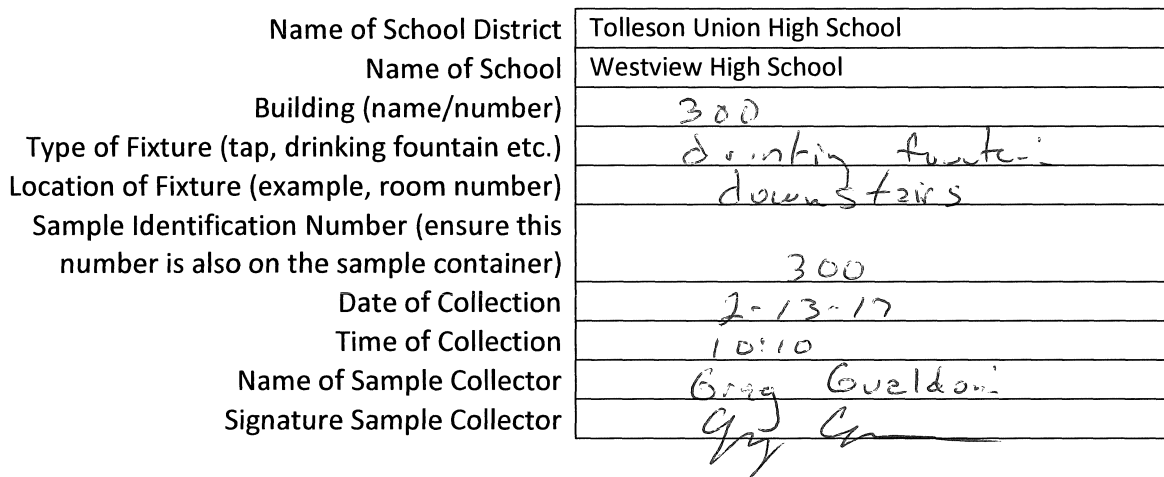 Name of School District Tolleson Union High School
Name of School Westview High School
Building (name/number) 300
Type of Fixture (tap, drinking fountain etc.) drinking fountain
Location of Fixture (example, room number) downstairs
Sample Identification Number (ensure this
number is also on the sample container) 300
Date of Collection 2-13-17
Time of Collection 10:10
Name of Sample Collector Greg
Signature Sample Collector